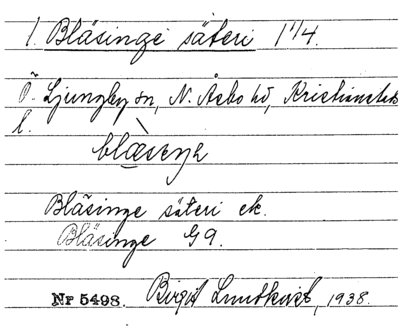 1. Bläsinge säteri 1 1/4.
Ö. Ljungby sn, N. Åsbo hd, Kristianstads
l.
Bläsinge säteri ek.
Bläsinge G9.
Nr 5498. Birgit Lundkvist, 1938.